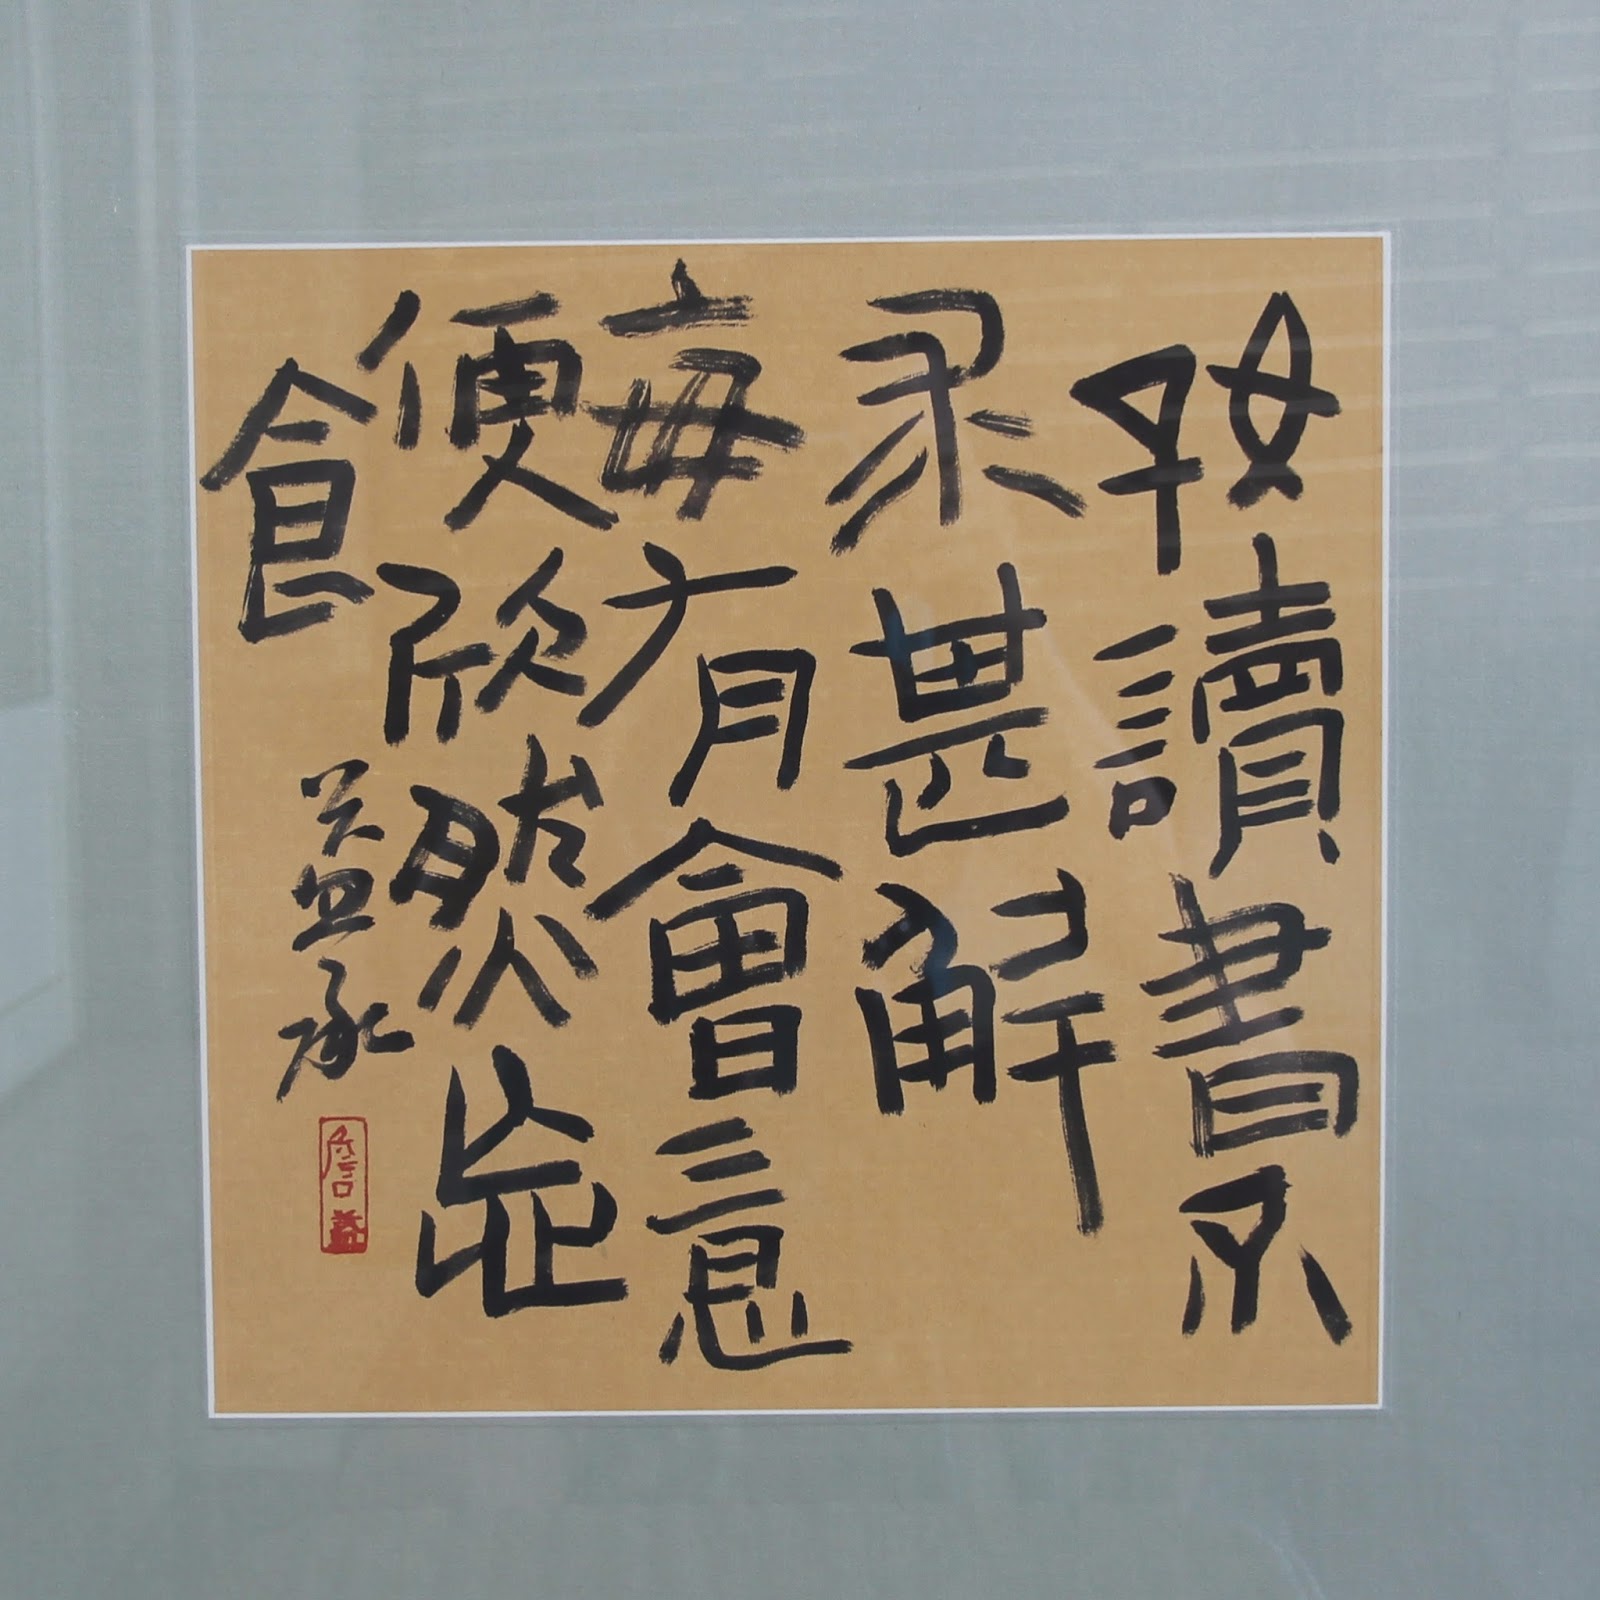 好讀書不
求甚解
每有會意
便欣然忘
食
益承
詹益